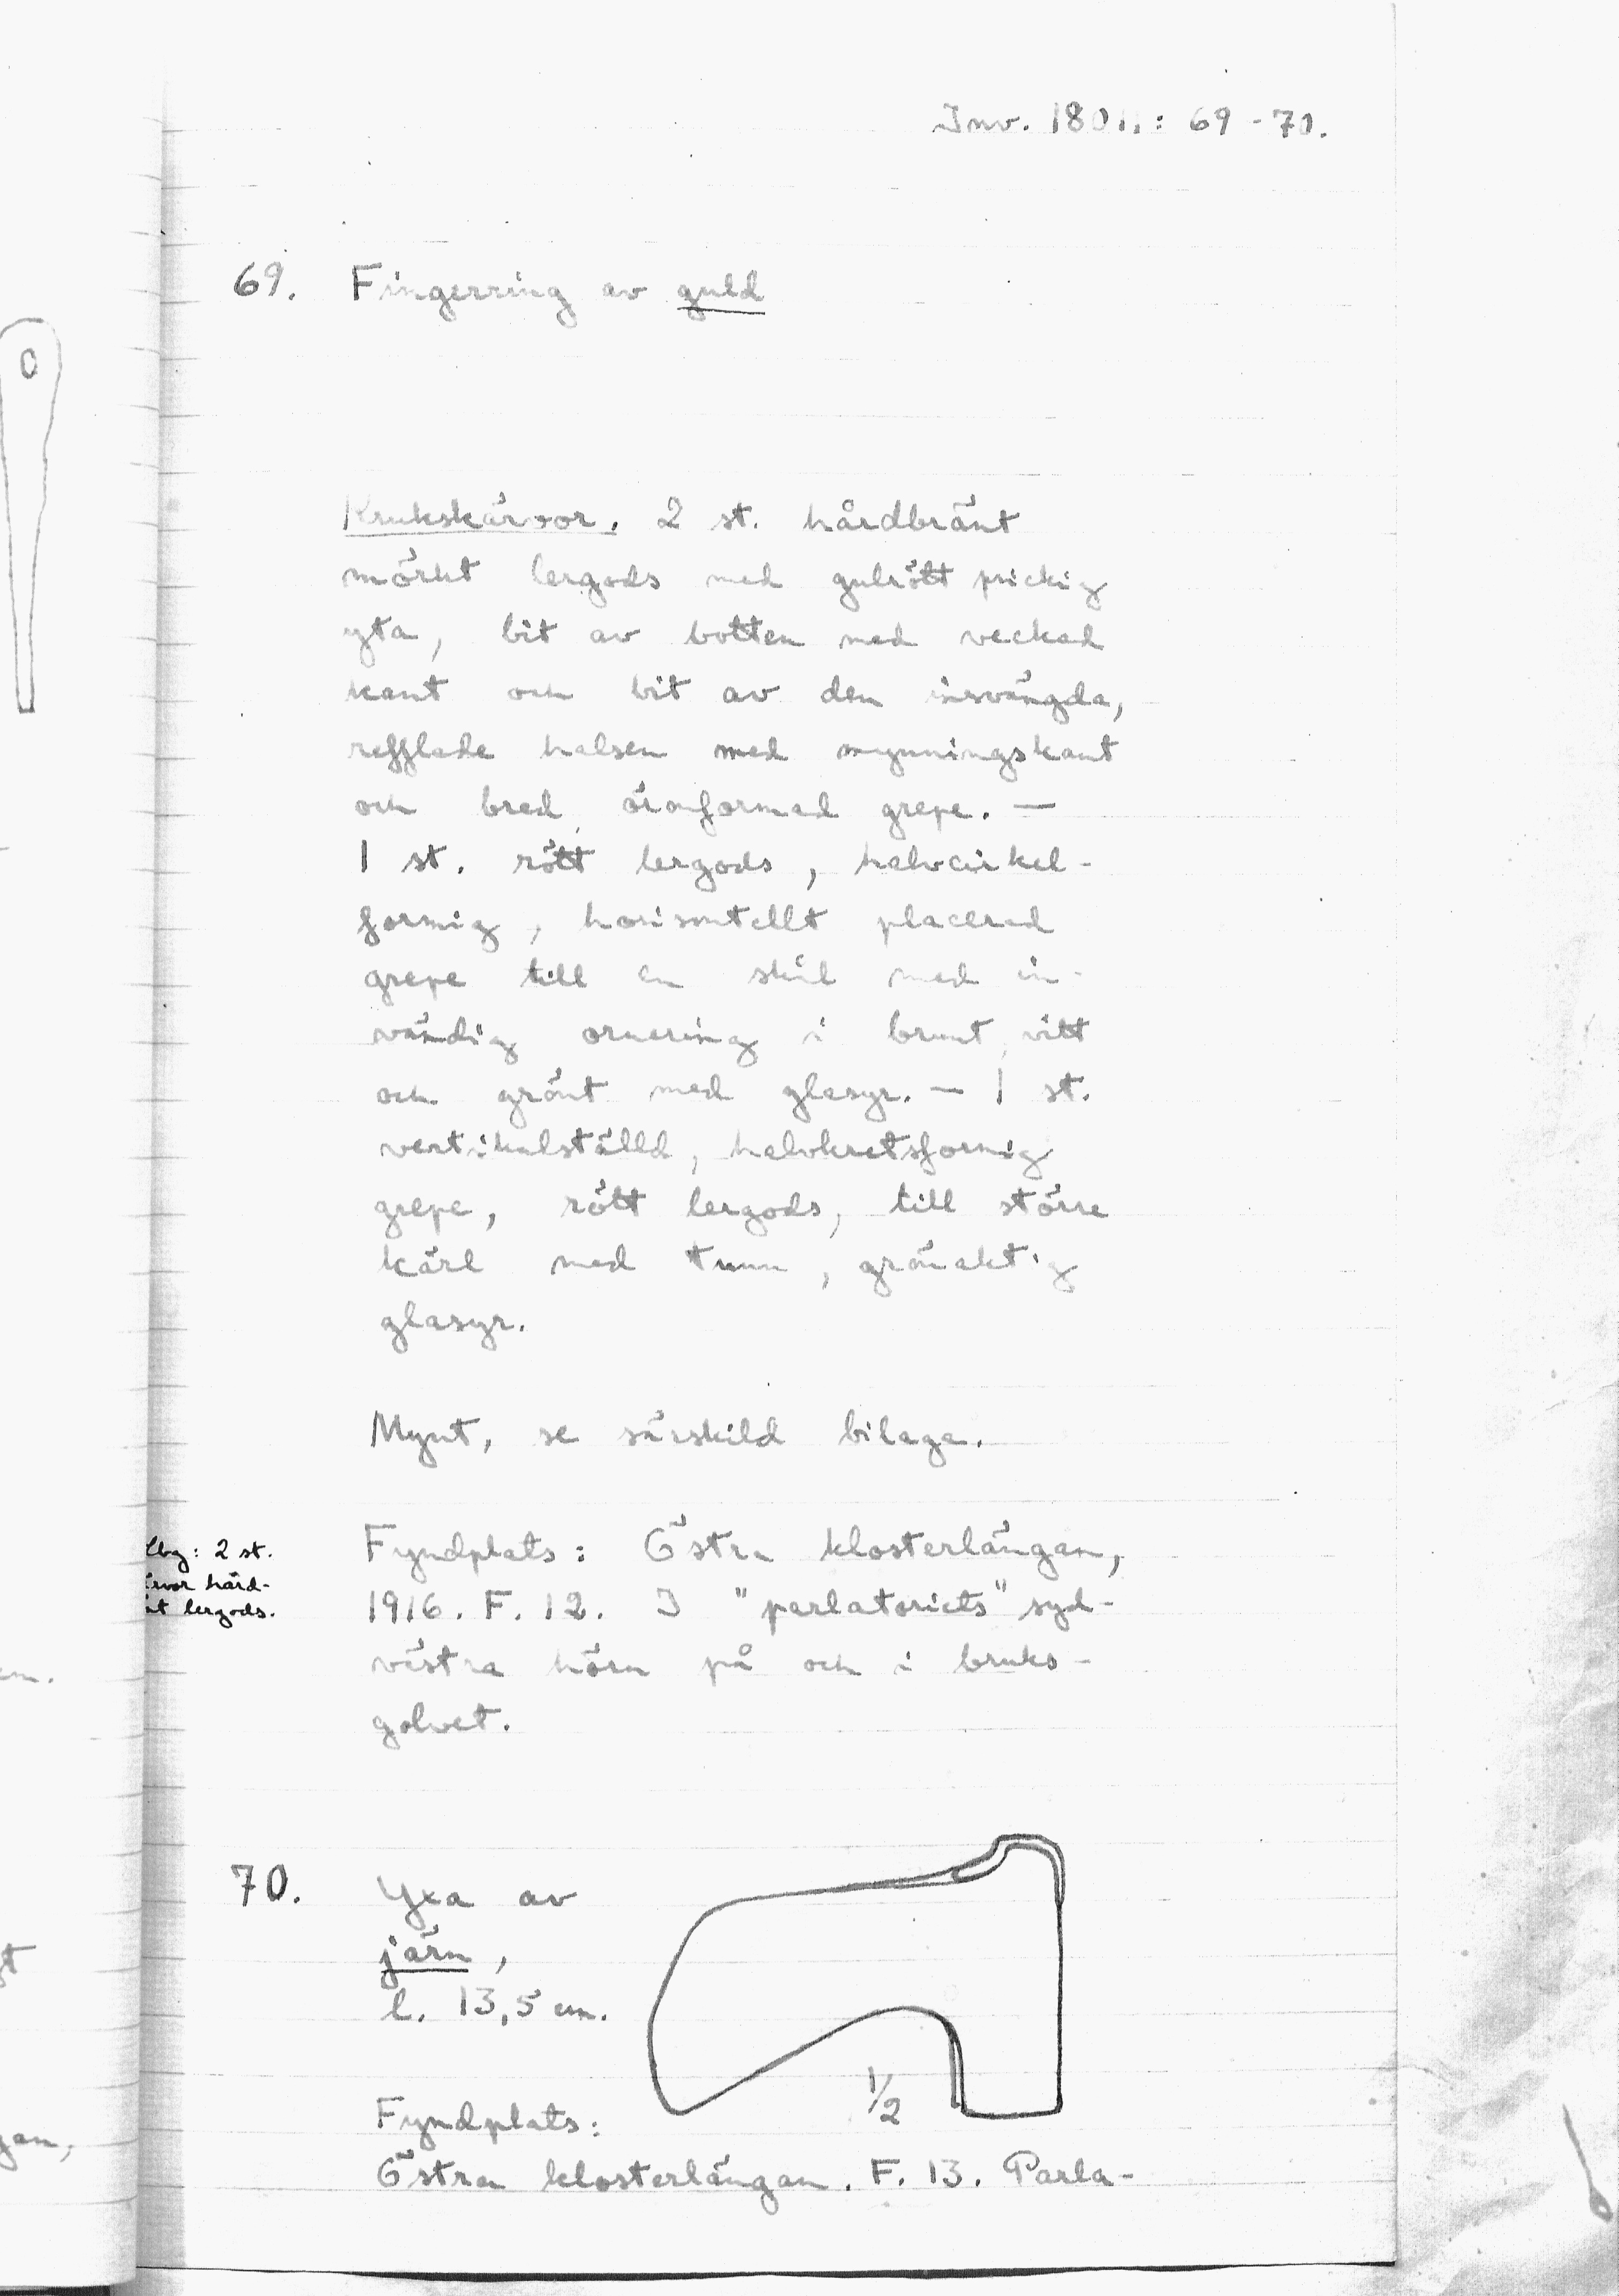 Inv. 18011: 69-70.
69. Fingerring av guld
Krukskärvor. 2 st. hårdbränt
mörkt lergods med gulrött prickig
yta, bit av botten med veckad
kant och bit av den insvängda,
refflade halsen med mynningskant
och bred, öronformad grepe. —
1 st. rött lergods, halvcirkel-
formig, horisontellt placerad
grepe till en skål med in-
vändig ornering i brunt, vitt
och grönt med glasyr. — 1 st.
vertikalställd, halvkretsformig
grepe, rött lergods, till större
kärl med tunn, grönaktig
glasyr.
Mynt, se särskild bilaga.
Fyndplats: Östra klosterlängan,
1916. F. 12. I "parlatoriets" syd-
västra hörn på och i bruks-
golvet.
2 st.
hård-
lergods.
70. Yxa av
järn,
l. 13,5 cm.
1/2
Fyndplats:
Östra klosterlängan. F. 13. Parla-